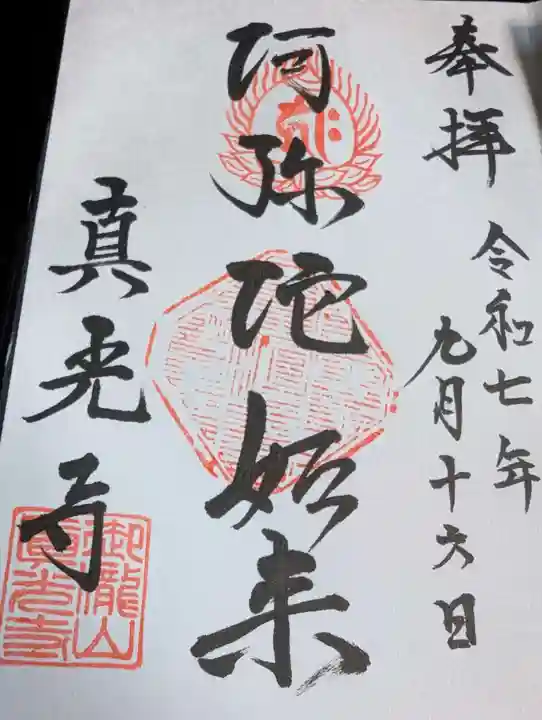 奉拝
令和七年
九月十六日
阿弥陀如来
真光寺
御瀧山
真光寺